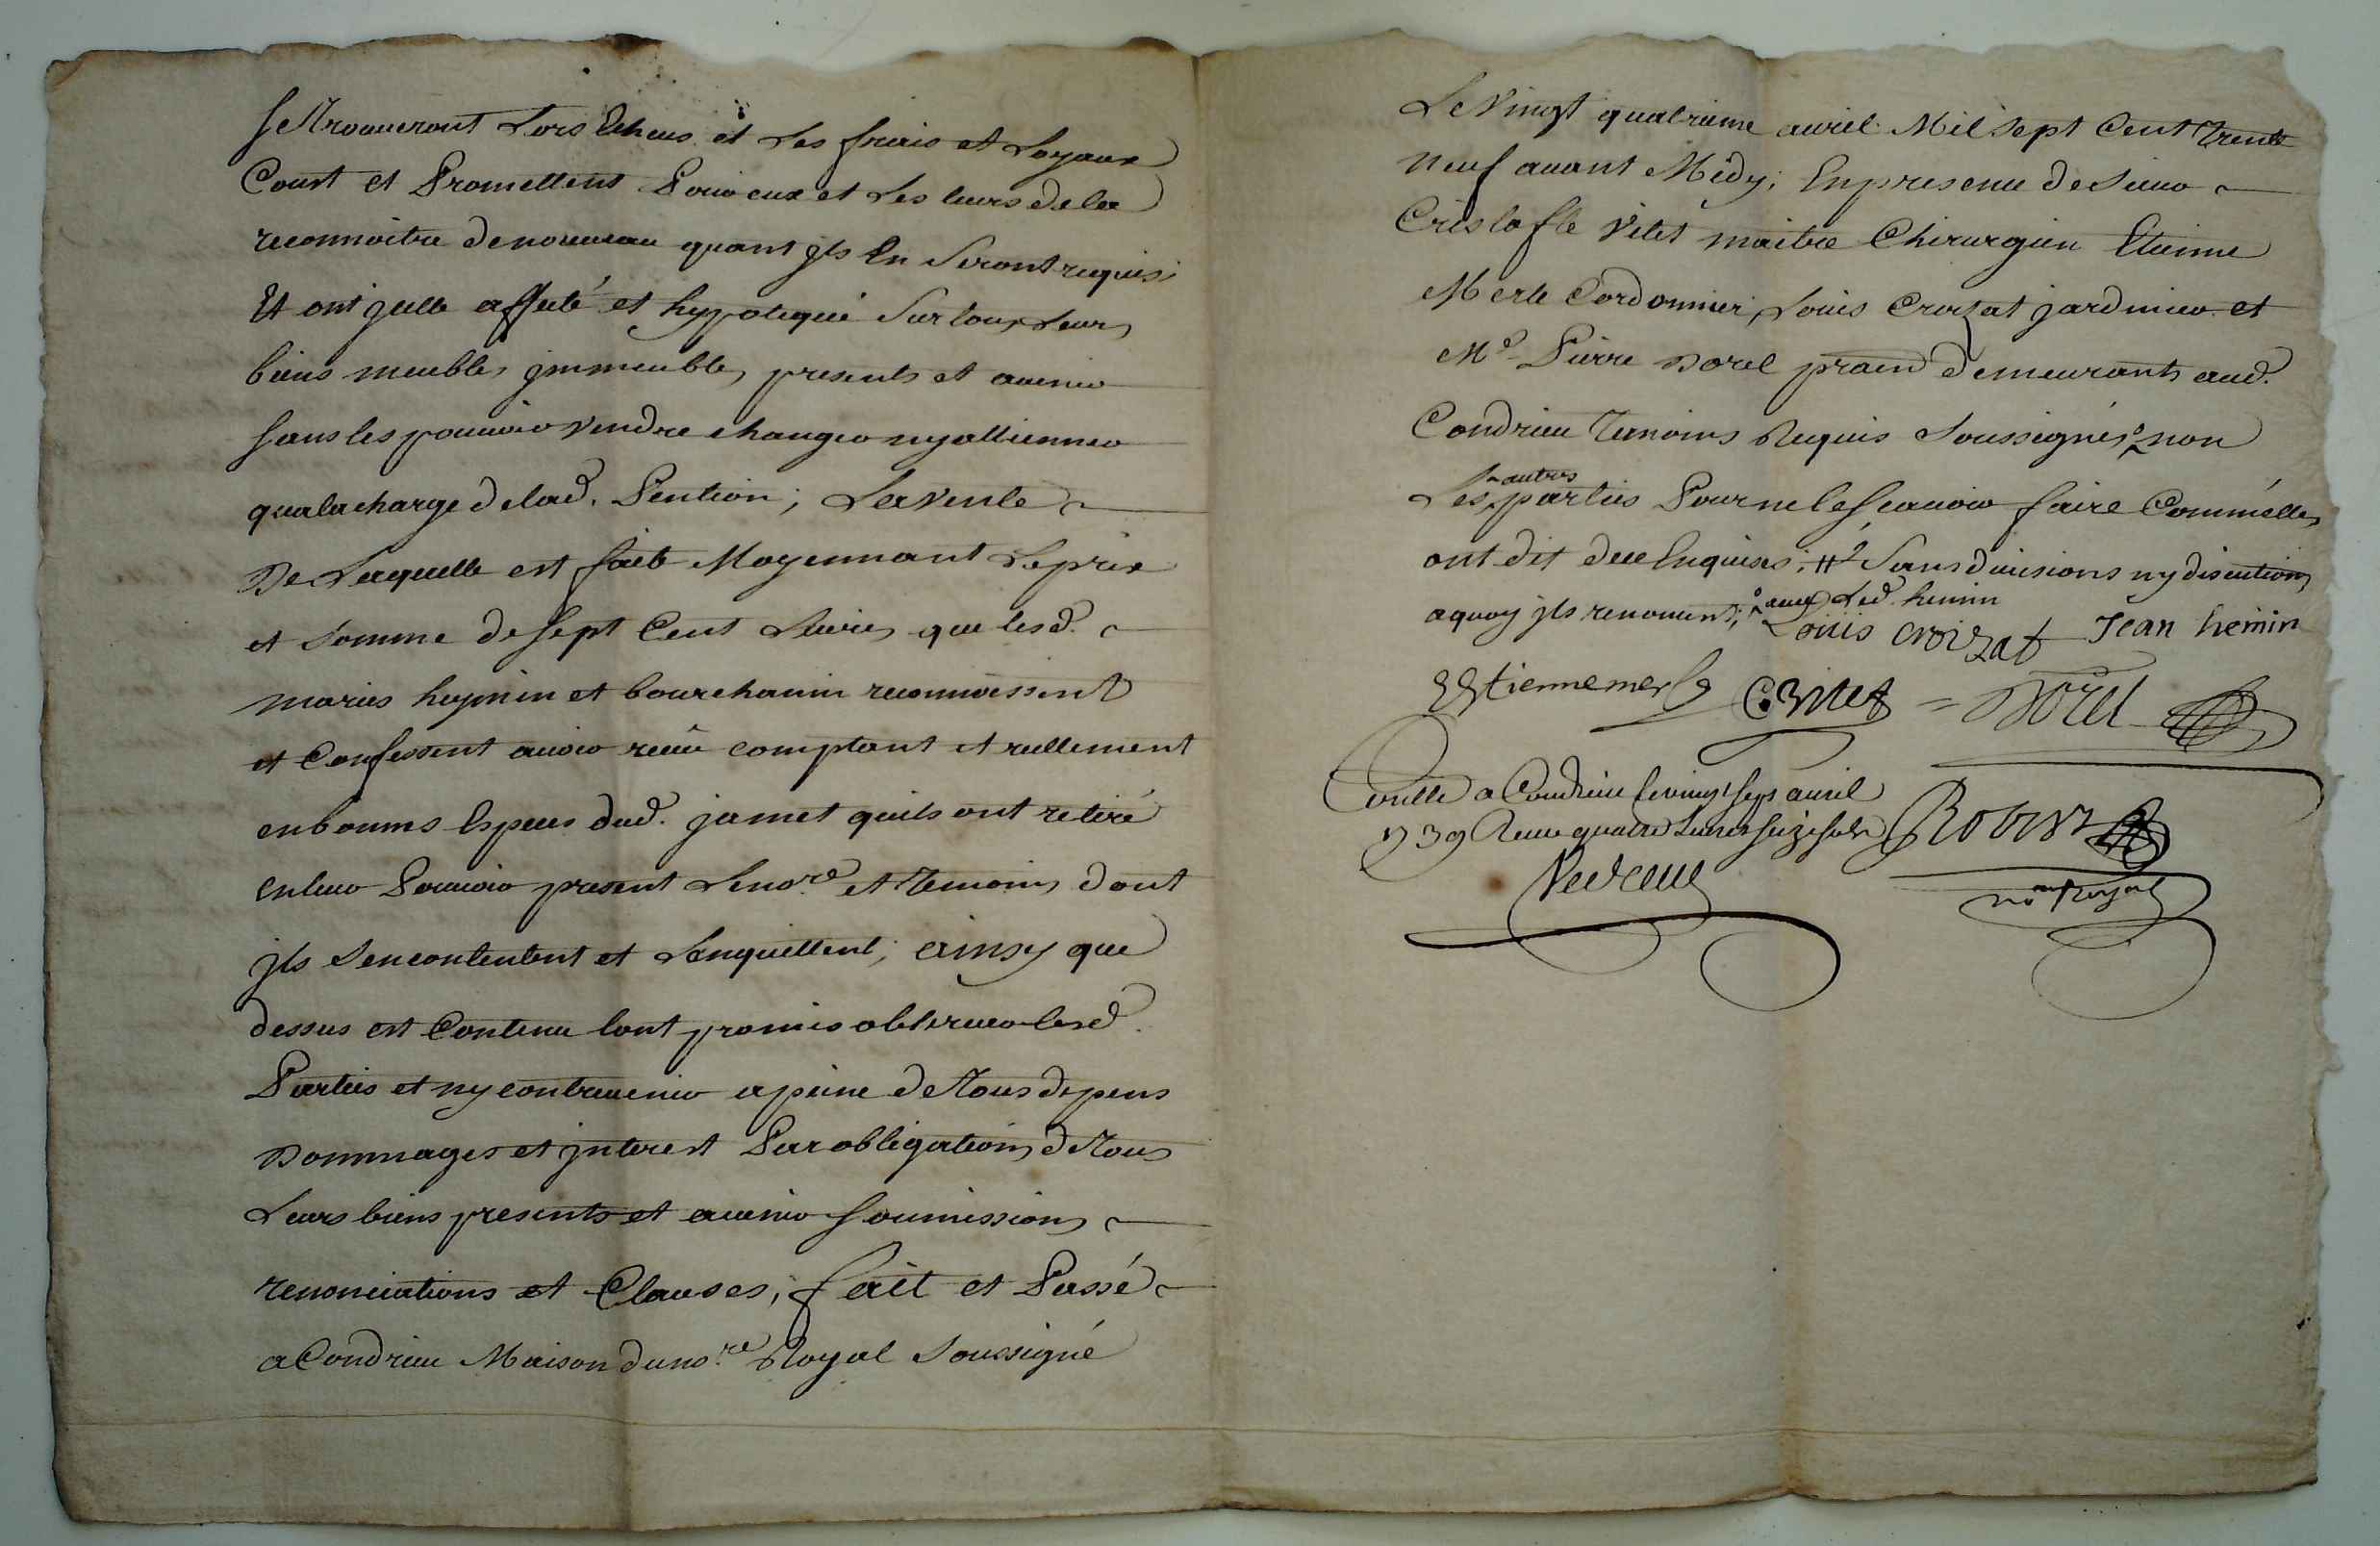 se trouveront Lors Echeus et Les frais et Loyaux
Coust et Promettent Pour eux et Les leurs de la
reconnoitre de nouveau quant jls En Seront requis;
Et ont jcelle affecté et hypotequé Sur tous Leurs
biens meubles jmmeubles presents et avenir
sans les pouvoir vendre changer ny allienner
qua la charge de lad. Pention; La vente
De Laquelle est faite Moyennant Le prix
et Somme de sept Cent Livres que lesd.
mariés heymin et bourchanin reconnoissent
et Confessent avoir reçu comptant et reellement
en bonnes Especes dud. jamet quils ont retiré
en leur Pouvoir present Le no.re et Temoins dont
jls Sen contentent et Lenquittent; ainsy que
dessus est Contenu lont promis observer lesd.
Parties et ny contrevenir a peine de Tous depens
Dommages et jnterest Par obligations de Tous
Leurs biens presents et avenir soumissions
renonciations et Clauses; fait et Passé
a Condrieu Maison du no.re Royal Soussigné
Le Vingt quatrieme avril Mil sept Cent Trente
neuf avant Midy; En presence de Sieur
Cristofle Vitet maitre Chirurgien Etienne
Merle Cordonnier, Louis Croizat jardinier et
Me Pierre Dorel pratn demeurants aud.
Condrieu Temoins Requis Soussignés non
autres
Les parties Pour ne le scavoir faire Comme elles
ont dit de ce Enquises; # Sans divisions ny discutions
a quoy jls renoncent; avec Led. hemin
Louis croizat Jean hemin
Estienne merle C. Vitet Dorel
Conllé a Condrieu le vingt sept avril
1739 Receu quatre Livres seize sols
no.re Royal